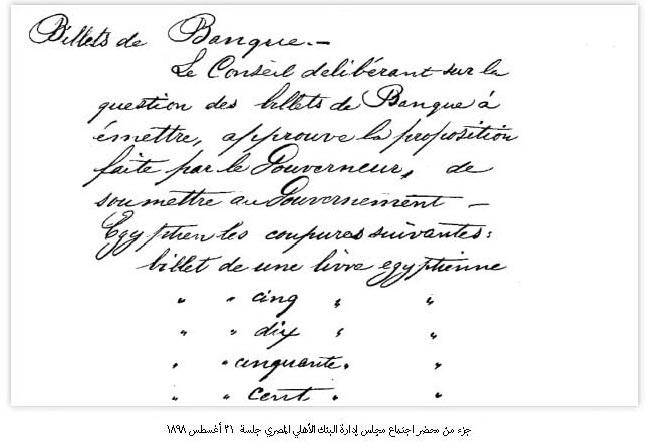 Billets de Banque.—
Le Conseil délibérant sur la
question des billets de Banque à
émettre, approuve la proposition
faite par le Gouverneur, de
soumettre au Gouvernement —
Egyptien les coupures suivantes:
billet de une livre egyptienne
" " cinq " "
" " dix " "
" " cinquante " "
" " cent " "
جزء من محضر اجتماع مجلس إدارة البنك الأهلي المصري جلسة ٣١ أغسطس ١٨٩٨